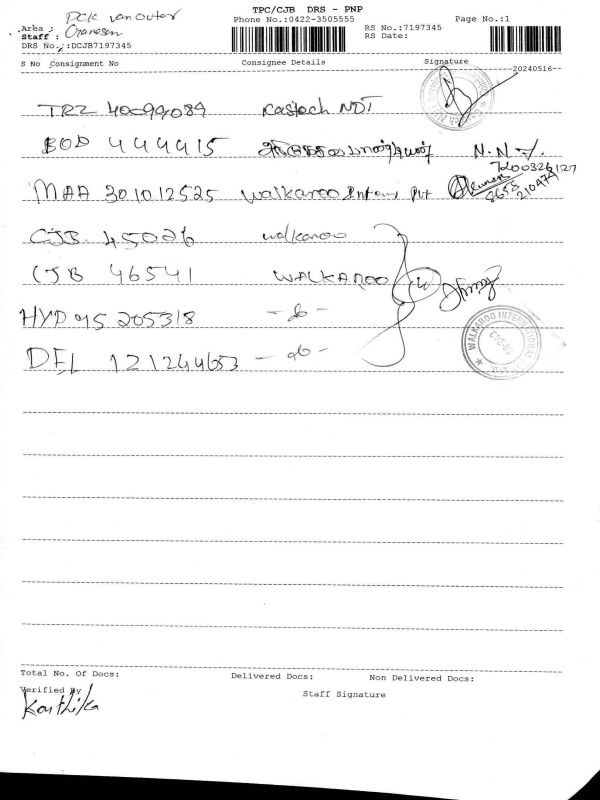 TPC/CJB DRS - PNP
Phone No.:0422-3505555
RS No.:7197345
RS Date:
Page No.:1
Area : PCK van outer
Staff :
DRS No.:DCJB7197345
S No Consignment No Consignee Details Signature
20240516
TRZ 40099089 Kastech NDT
BOD 444415
N.N
7200326127
MAA 301012525 walkaroo Pvt
8658
210474
CJB 45026 walkaroo
CJB 46541 WALKAROO
HYD 95 205318 - do -
DEL 121244653 - do -
WALKAROO INTERNATIONAL
Total No. Of Docs: Delivered Docs: Non Delivered Docs:
Verified By Staff Signature
Karthika